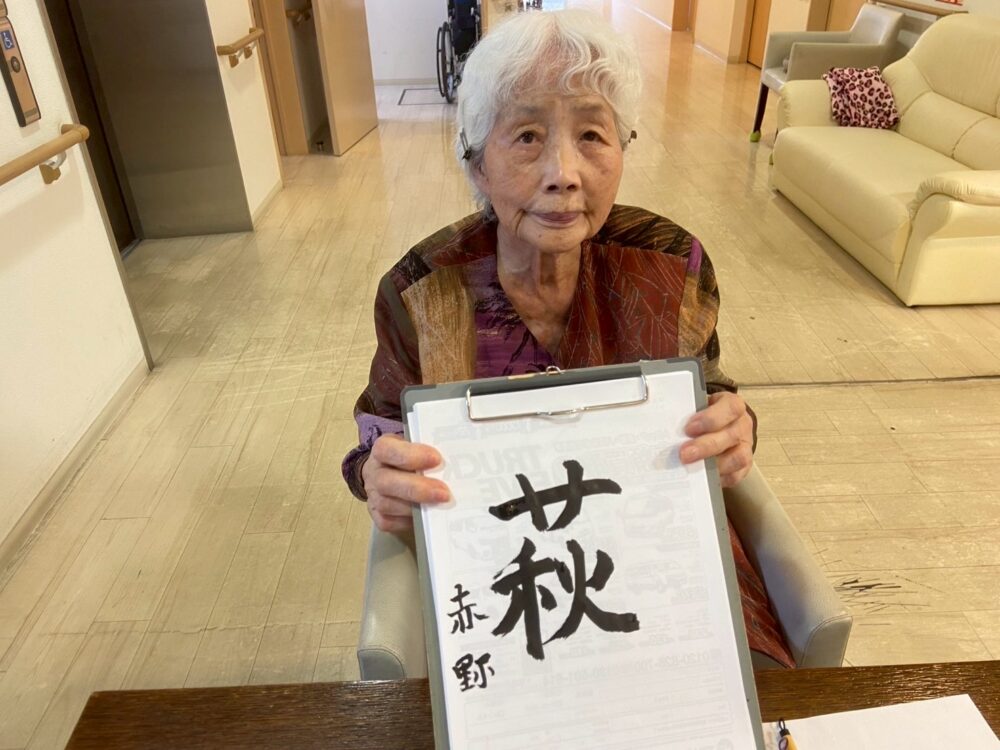 萩
赤野